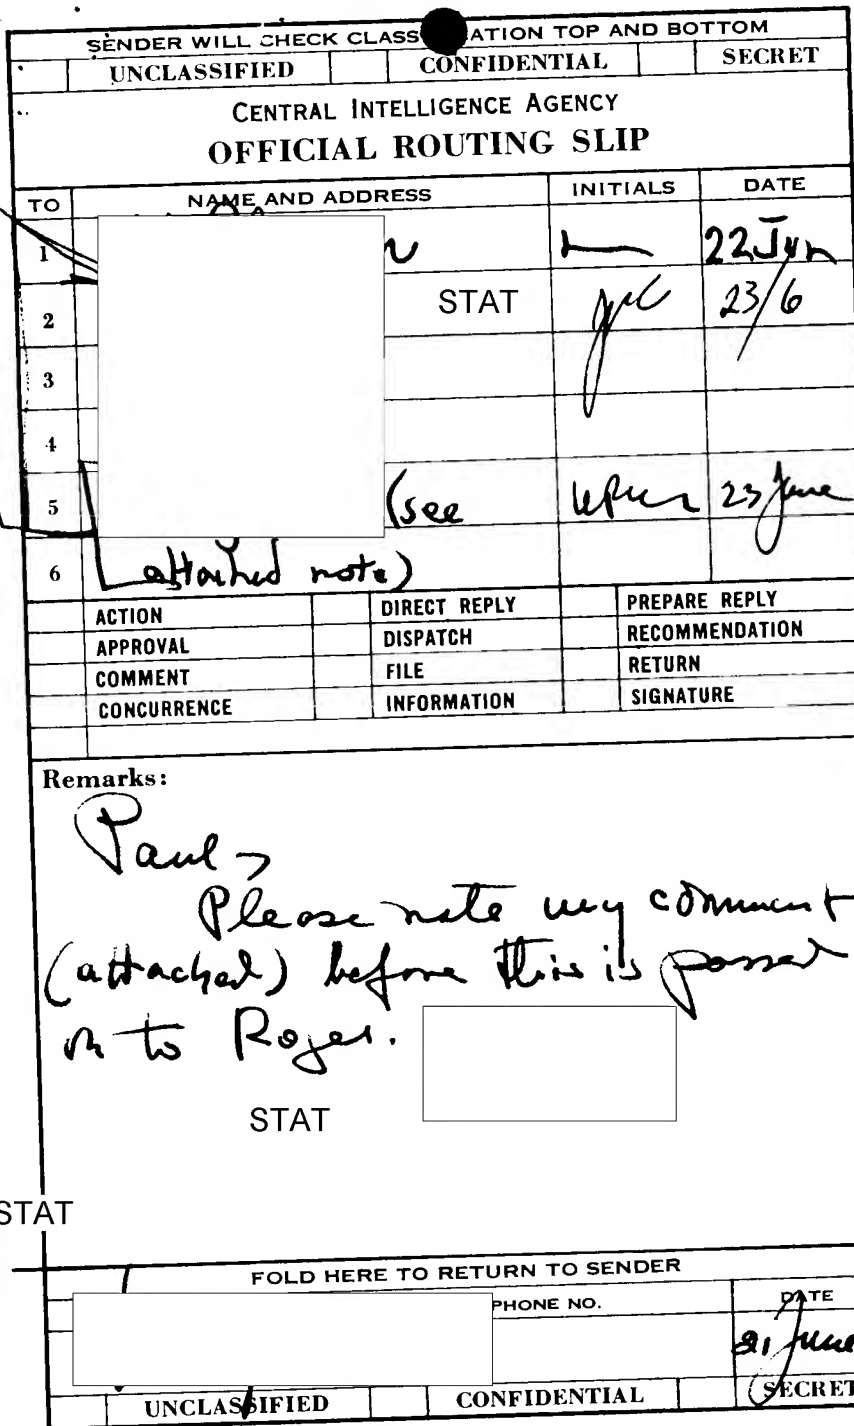 SENDER WILL CHECK CLASS ATION TOP AND BOTTOM
UNCLASSIFIED CONFIDENTIAL SECRET
CENTRAL INTELLIGENCE AGENCY
OFFICIAL ROUTING SLIP
TO NAME AND ADDRESS INITIALS DATE
1 22 Jun
2 STAT 23/6
3
4
5 (see 23 June
6 attached note)
ACTION DIRECT REPLY PREPARE REPLY
APPROVAL DISPATCH RECOMMENDATION
COMMENT FILE RETURN
CONCURRENCE INFORMATION SIGNATURE
Remarks:
Paul -
Please note my comment
(attached) before this is passed
on to Roger.
STAT
STAT
FOLD HERE TO RETURN TO SENDER
PHONE NO. DATE
21 June
UNCLASSIFIED CONFIDENTIAL SECRET